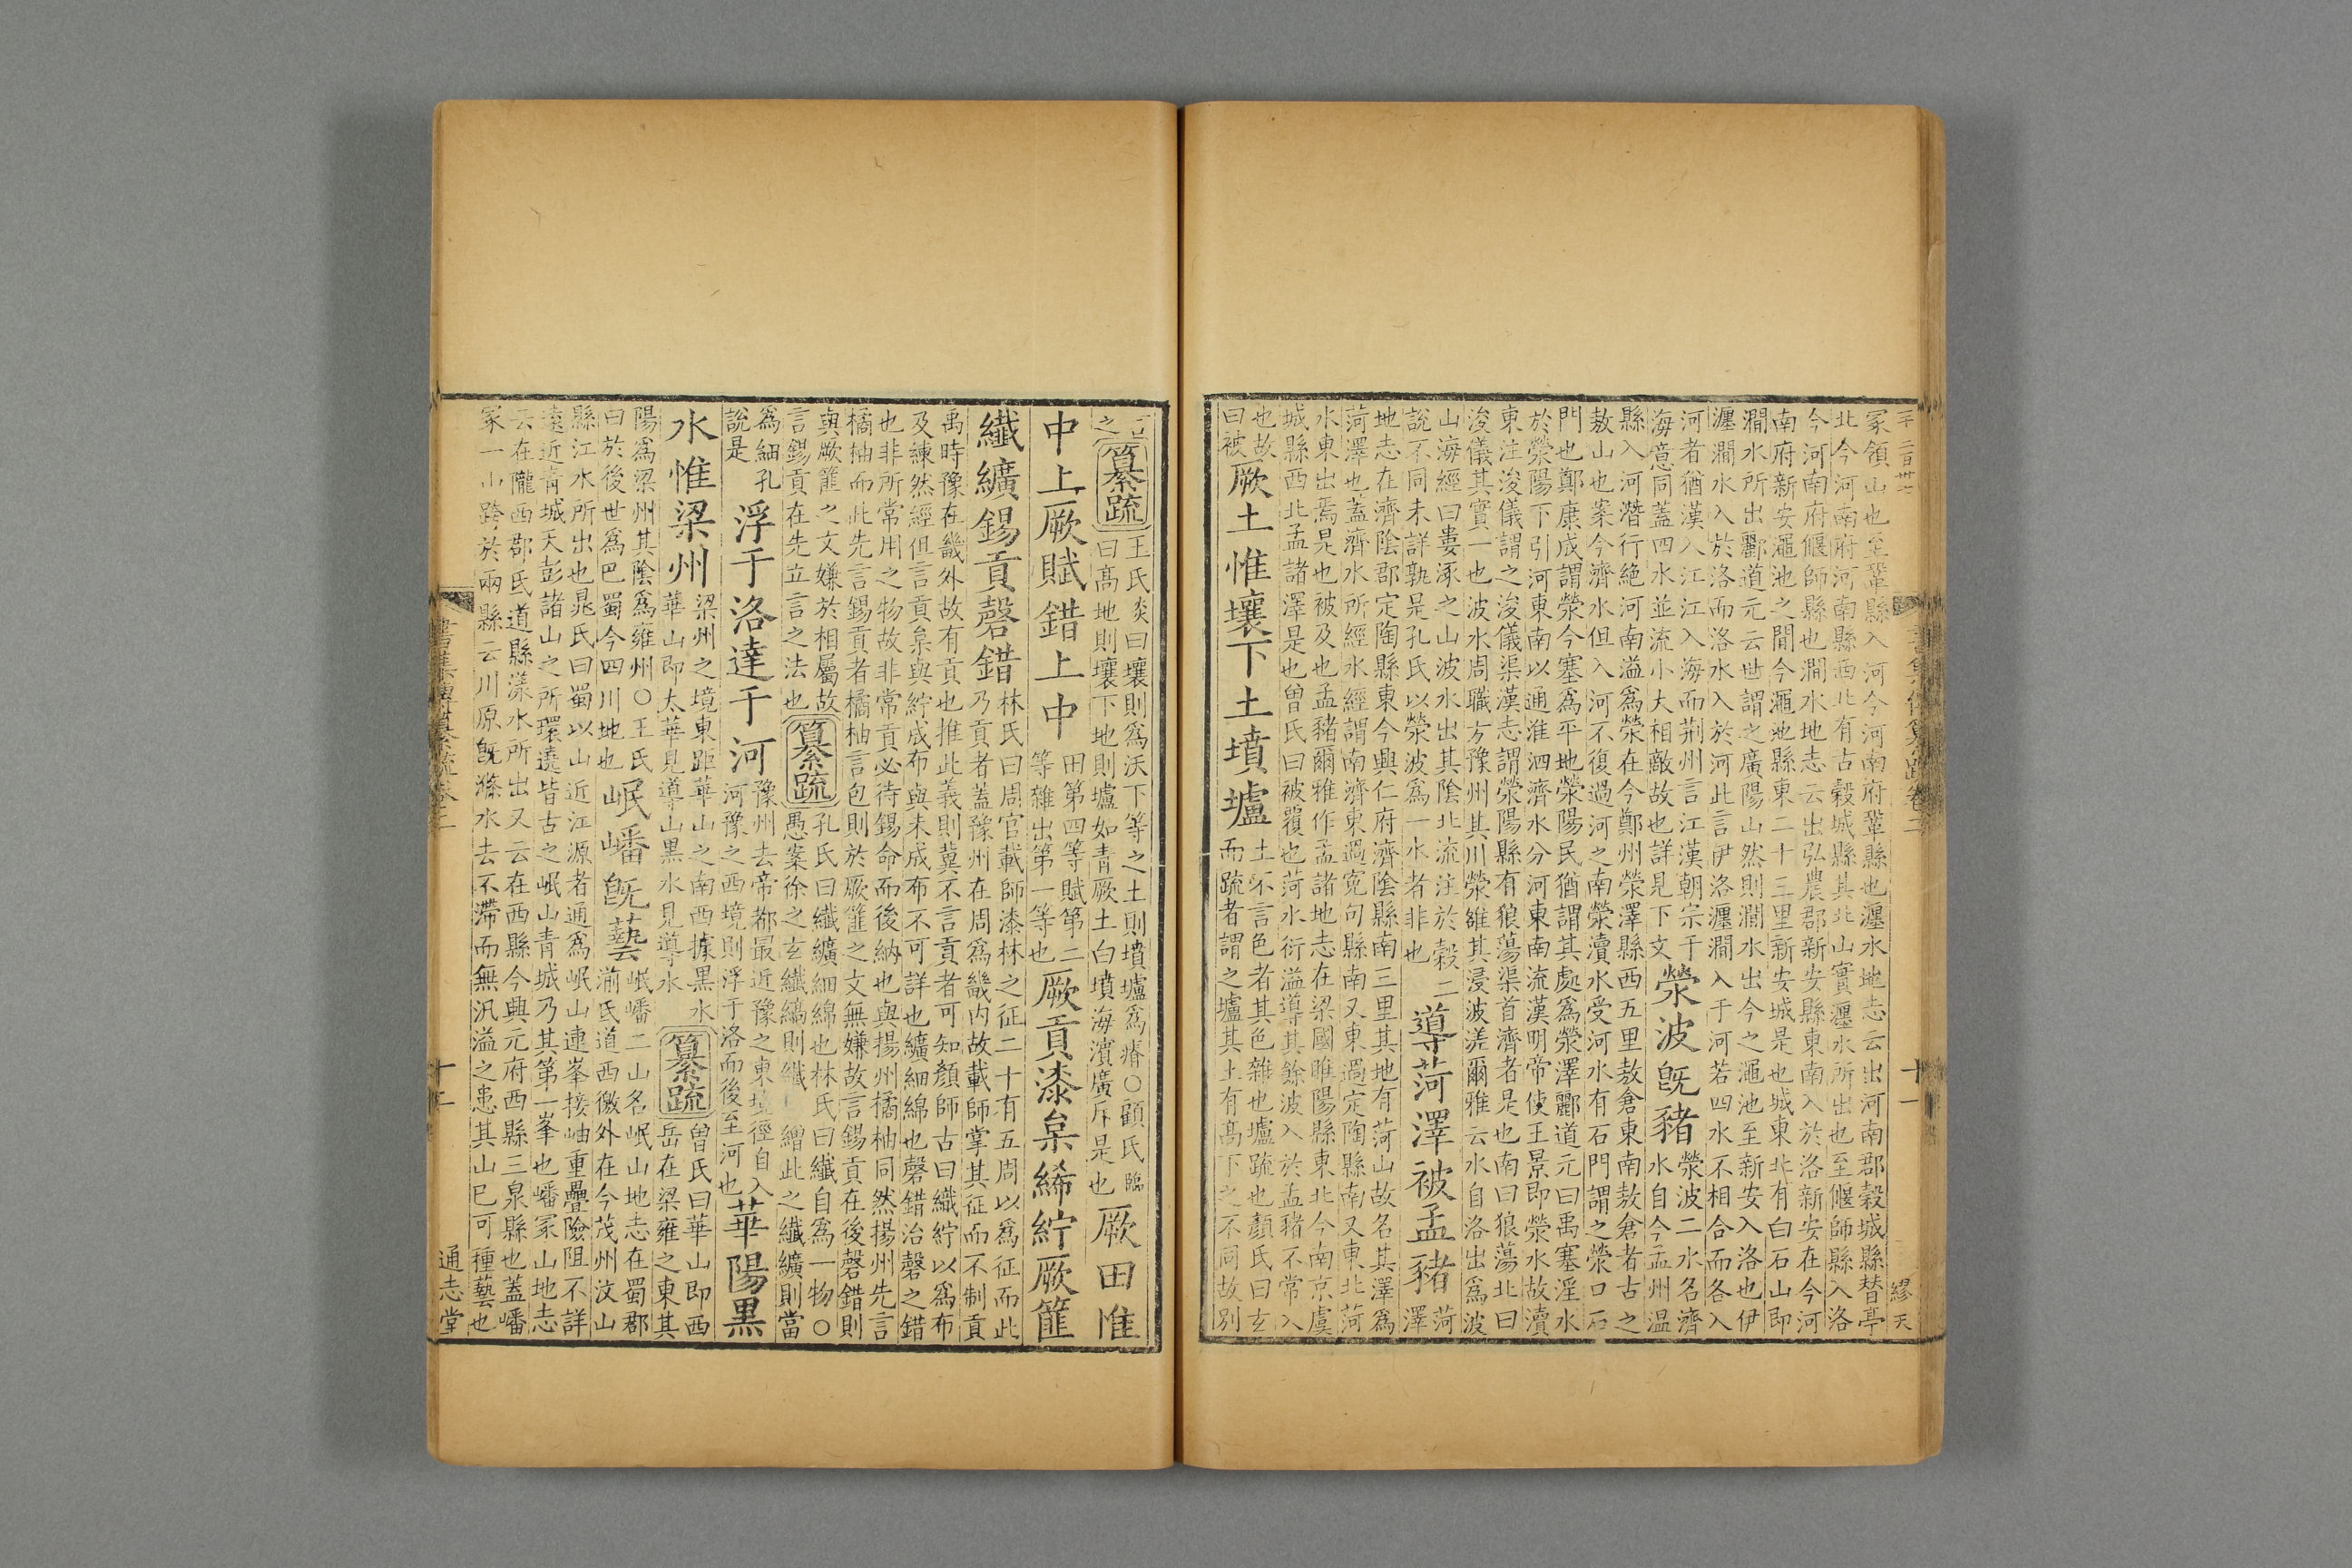 三千二百卅七
書集傳纂疏卷二　十一　繆天
冢領山也至鞏縣入河今河南府鞏縣也瀍水地志云出河南郡榖城縣朁亭
北今河南府河南縣西北有古穀城縣其北山實瀍水所出也至偃師縣入洛
今河南府偃師縣也澗水地志云出弘農郡新安縣東南入於洛新安在今河
南府新安澠池之間今澠池縣東二十三里新安城是也城東北有白石山即
澗水所出酈道元云世謂之廣陽山然則澗水出今之澠池至新安入洛也伊
瀍澗水入於洛而洛水入於河此言伊洛瀍澗入于河若四水不相合而各入
河者猶漢入江江入海而荆州言江漢朝宗于
海意同蓋四水並流小大相敵故也詳見下文
滎波旣豬
滎波二水名濟
水自今孟州温
縣入河潛行絶河南溢為滎在今鄭州滎澤縣西五里敖倉東南敖倉者古之
敖山也案今濟水但入河不復過河之南滎瀆水受河水有石門謂之滎口石
門也鄭康成謂滎今塞為平地滎陽民猶謂其處為滎澤酈道元曰禹塞淫水
於滎陽下引河東南以通淮泗濟水分河東南流漢明帝使王景即滎水故瀆
東注浚儀謂之浚儀渠漢志謂滎陽縣有狼蕩渠首濟者是也南曰狼蕩北曰
浚儀其實一也波水周職方豫州其川滎雒其浸波溠爾雅云水自洛出為波
山海經曰婁涿之山波水出其陰北流注於穀二
說不同未詳孰是孔氏以滎波為一水者非也
導菏澤被孟豬
菏
澤
地志在濟陰郡定陶縣東今興仁府濟陰縣南三里其地有菏山故名其澤為
菏澤也蓋濟水所經水經謂南濟東過寃句縣南又東過定陶縣南又東北菏
水東出焉是也被及也孟豬爾雅作孟諸地志在梁國睢陽縣東北今南京虞
城縣西北孟諸澤是也曾氏曰被覆也菏水衍溢導其餘波入於孟豬不常入
也故
曰被
厥土惟壤下土墳壚
土不言色者其色雜也壚疏也顏氏曰玄
而疏者謂之壚其土有髙下之不同故別
言
之
纂疏
王氏炎曰壤則為沃下等之土則墳壚為瘠○顧氏臨
曰髙地則壤下地則壚如青厥土白墳海濱廣斥是也
厥田惟
中上厥賦錯上中
田第四等賦第二
等雜出第一等也
厥貢漆枲絺紵厥篚
纖纊錫貢磬錯
林氏曰周官載師漆林之征二十有五周以為征而此
乃貢者蓋豫州在周為畿内故載師掌其征而不制貢
禹時豫在畿外故有貢也推此義則冀不言貢者可知顏師古曰織紵以為布
及練然經但言貢枲與紵成布與未成布不可詳也纊細綿也磬錯治磬之錯
也非所常用之物故非常貢必待錫命而後納也與揚州橘柚同然揚州先言
橘柚而此先言錫貢者橘柚言包則於厥篚之文無嫌故言錫貢在後磬錯則
與厥篚之文嫌於相屬故
言錫貢在先立言之法也
纂疏
孔氏曰纖纊細綿也林氏曰纖自為一物○
愚案徐之玄纖縞則纖　繒此之纖纊則當
為細孔
說是
浮于洛達于河
豫州去帝都最近豫之東境徑自入
河豫之西境則浮于洛而後至河也
華陽黒
水惟梁州
梁州之境東距華山之南西據黒水
華山即太華見導山黒水見導水
纂疏
曾氏曰華山即西
岳在梁雍之東其
陽為梁州其陰為雍州○王氏
曰於後世為巴蜀今四川地也
岷嶓旣藝
岷嶓二山名岷山地志在蜀郡
湔氐道西徼外在今茂州汶山
縣江水所出也晁氏曰蜀以山近江源者通為岷山連峯接岫重疊險阻不詳
遠近青城天彭諸山之所環遶皆古之岷山青城乃其第一峯也嶓冢山地志
云在隴西郡氐道縣漾水所出又云在西縣今興元府西縣三泉縣也蓋嶓
冢一山跨於兩縣云川原旣滌水去不滯而無汎溢之患其山已可種藝也
書集傳纂疏卷二　十二　通志堂